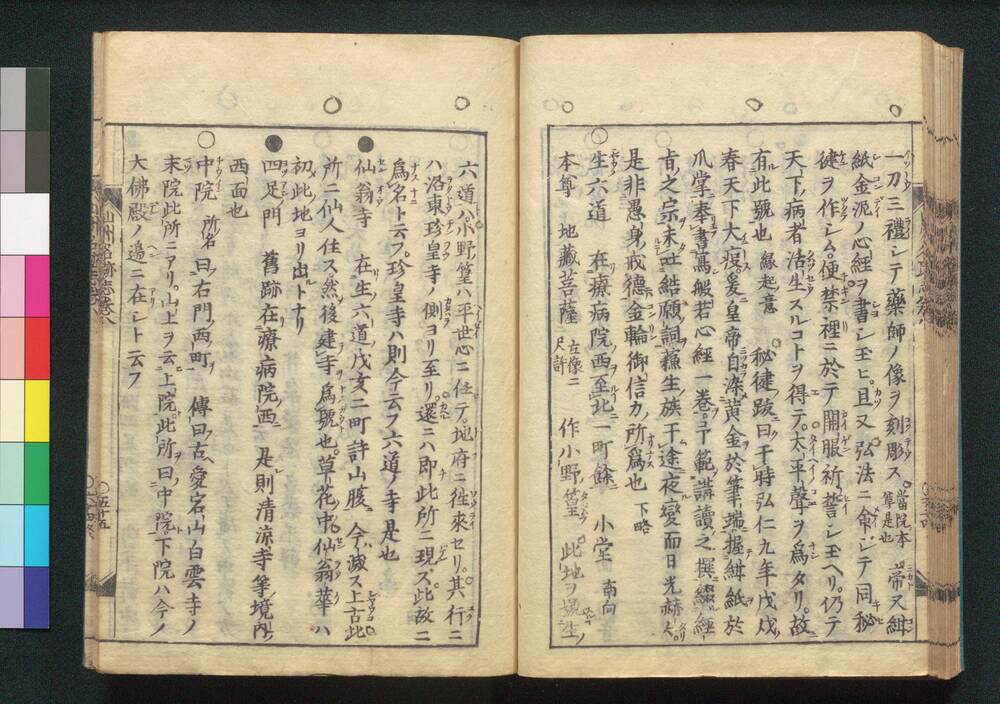 一刀三禮シテ藥師ノ像ヲ刻彫ス 當院本尊是也 帝又紺
紙金泥ノ心經ヲ書シ玉ヒ且又弘法ニ命シテ同秘
鍵ヲ作シム便禁裡ニ於テ開眼祈誓シ玉ヘリ仍テ
天下病者活生スルコトヲ得テ太平聲ヲ爲タリ故
有此號也 縁起意 秘鍵跋曰于時弘仁九年戊戌
春天下大疫爰皇帝自染黄金於筆端握紺紙於
爪掌奉書寫般若心經一巻予範講讀之撰綴經
旨之宗未吐結願詞蘓生族于途夜變而日光赫々
是非愚身戒德金輪御信力所爲也 下略
生六道 在療病院西至北一町餘 小堂 南向
本尊 地藏菩薩 立像二尺許 作小野篁 此地ヲ生
六道ハ小野篁ハ平世心ニ任テ地府ニ往來セリ其行ニ
ハ洛東珍皇寺ノ側ヨリ至リ還ニハ即此所ニ現ズ此故ニ
爲名ト云フ珍皇寺ハ則今云フ六道ノ寺是也
仙翁寺 在生六道戌亥二町許山腹 今滅ス上古此
所ニ仙人住ス然後建寺爲號也草花中仙翁華ハ
初メ此地ヨリ出トナリ
四足門 舊跡在療病院西 是則清凉寺筆境内
西面也
中院 所名曰右門西町 傳曰古愛宕山白雲寺ノ
末院此所ニアリ山上ヲ云上院此所曰中院下院ハ今ノ
大佛殿ノ邉ニ在シト云フ
山州名跡志巻八
五十五